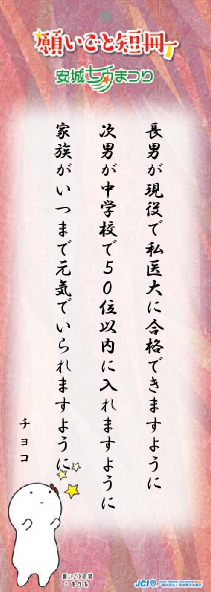 願いごと短冊
安城七夕まつり
長男が現役で私医大に合格できますように
次男が中学校で50位以内に入れますように
家族がいつまで元気でいられますように
チョコ
願いごと短冊
JCI